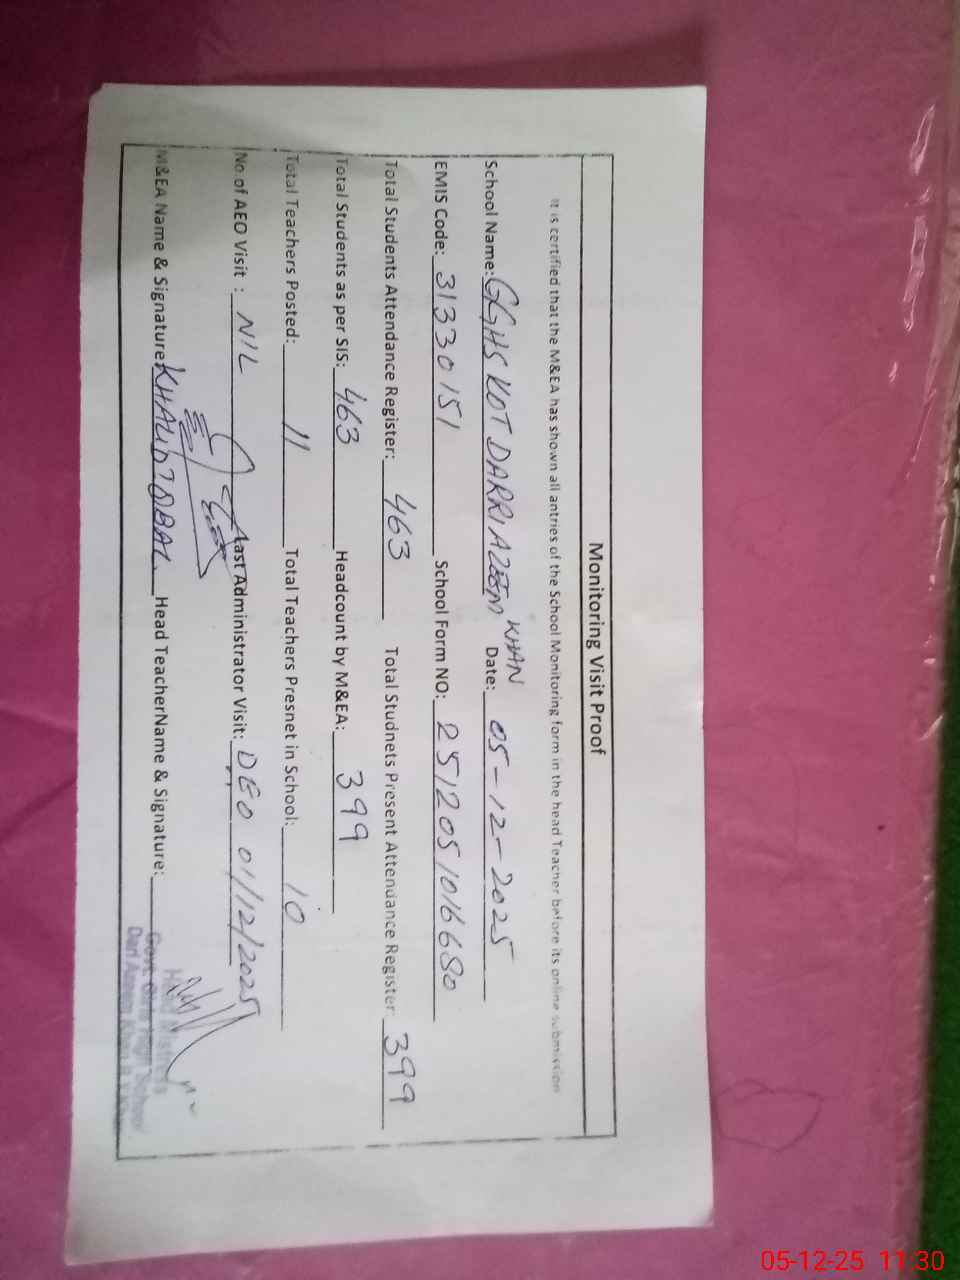 Monitoring Visit Proof
It is certified that the M&EA has shown all antries of the School Monitoring form in the head Teacher before its online submission
School Name: GGHS KOT DARRI AZEEM KHAN Date: 05-12-2025
EMIS Code: 31330151 School Form NO: 2512051016680
Total Students Attendance Register: 463 Total Studnets Present Attendance Register: 399
Total Students as per SIS: 463 Headcount by M&EA: 399
Total Teachers Posted: 11 Total Teachers Presnet in School: 10
No of AEO Visit : NIL Last Administrator Visit: DEO 01/12/2025
M&EA Name & Signature: KHALID IQBAL Head TeacherName & Signature:
Head Mistress
Govt. Girls High School
Dari Azeem Khan
05-12-25 11:30